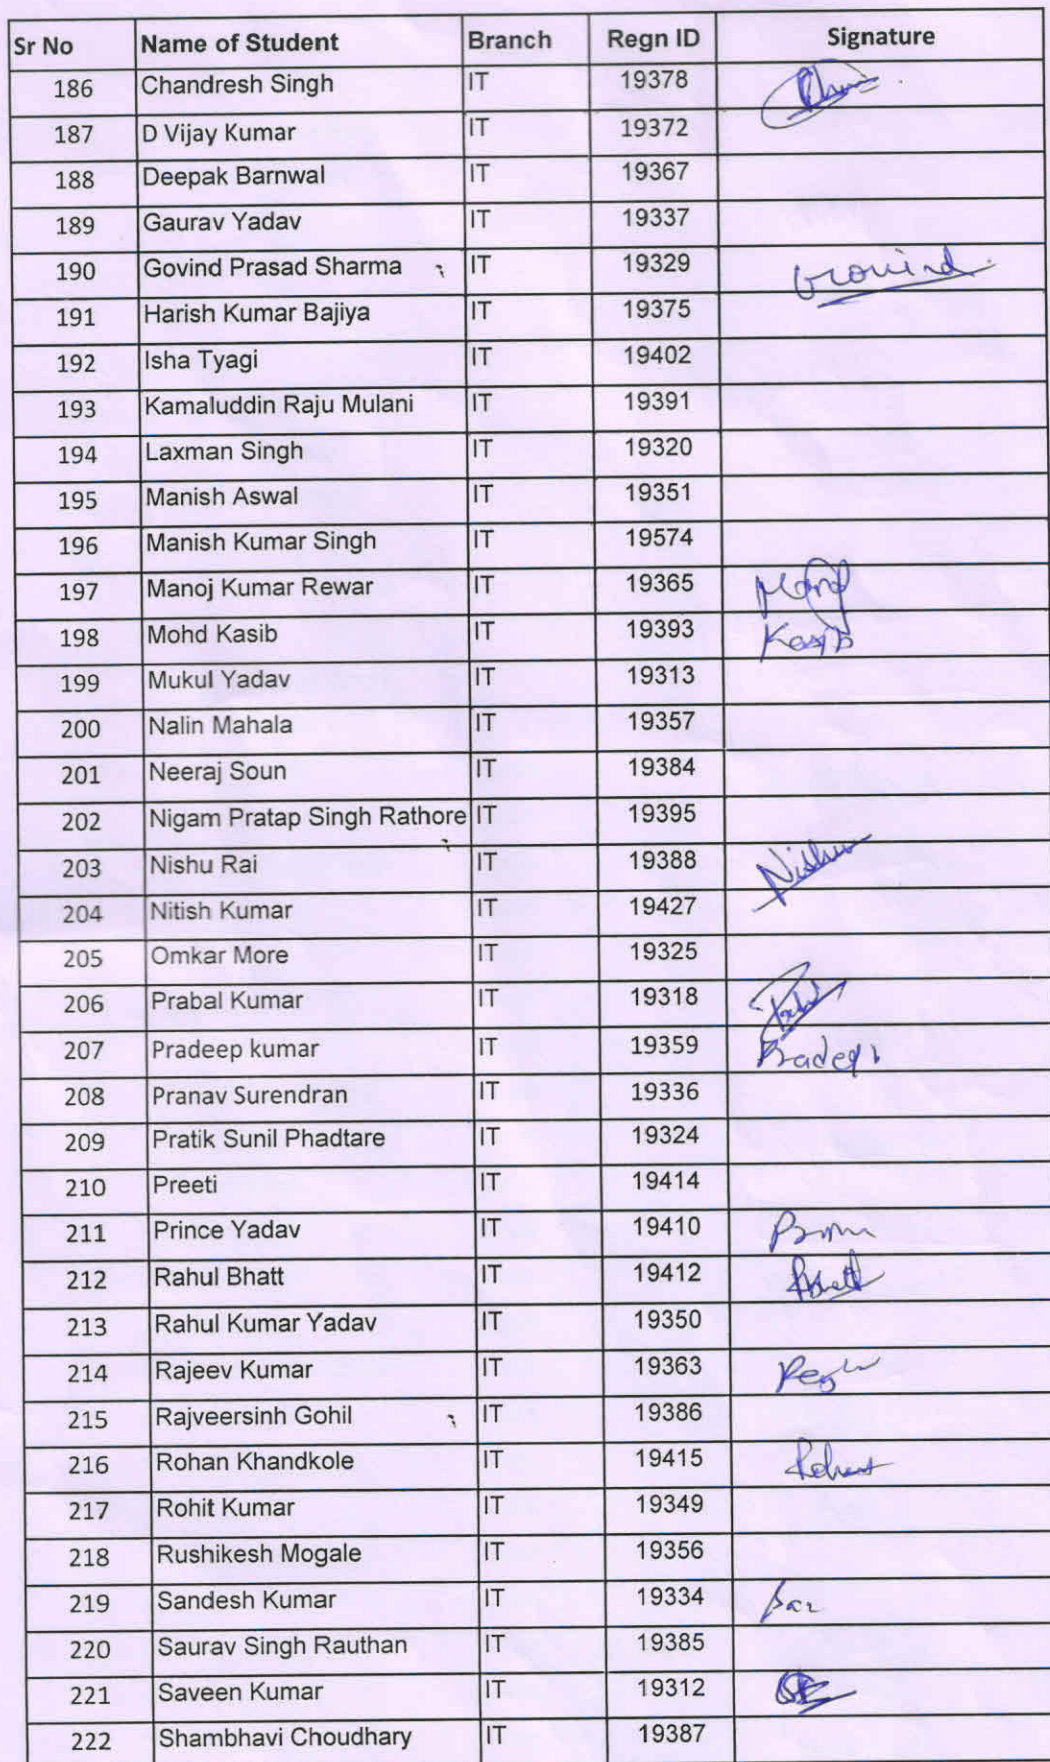 Sr No Name of Student Branch Regn ID Signature
186 Chandresh Singh IT 19378
187 D Vijay Kumar IT 19372
188 Deepak Barnwal IT 19367
189 Gaurav Yadav IT 19337
190 Govind Prasad Sharma IT 19329 Govind
191 Harish Kumar Bajiya IT 19375
192 Isha Tyagi IT 19402
193 Kamaluddin Raju Mulani IT 19391
194 Laxman Singh IT 19320
195 Manish Aswal IT 19351
196 Manish Kumar Singh IT 19574
197 Manoj Kumar Rewar IT 19365
198 Mohd Kasib IT 19393 Kasib
199 Mukul Yadav IT 19313
200 Nalin Mahala IT 19357
201 Neeraj Soun IT 19384
202 Nigam Pratap Singh Rathore IT 19395
203 Nishu Rai IT 19388 Nishu
204 Nitish Kumar IT 19427
205 Omkar More IT 19325
206 Prabal Kumar IT 19318
207 Pradeep kumar IT 19359 Pradeep
208 Pranav Surendran IT 19336
209 Pratik Sunil Phadtare IT 19324
210 Preeti IT 19414
211 Prince Yadav IT 19410
212 Rahul Bhatt IT 19412
213 Rahul Kumar Yadav IT 19350
214 Rajeev Kumar IT 19363
215 Rajveersinh Gohil IT 19386
216 Rohan Khandkole IT 19415
217 Rohit Kumar IT 19349
218 Rushikesh Mogale IT 19356
219 Sandesh Kumar IT 19334
220 Saurav Singh Rauthan IT 19385
221 Saveen Kumar IT 19312
222 Shambhavi Choudhary IT 19387